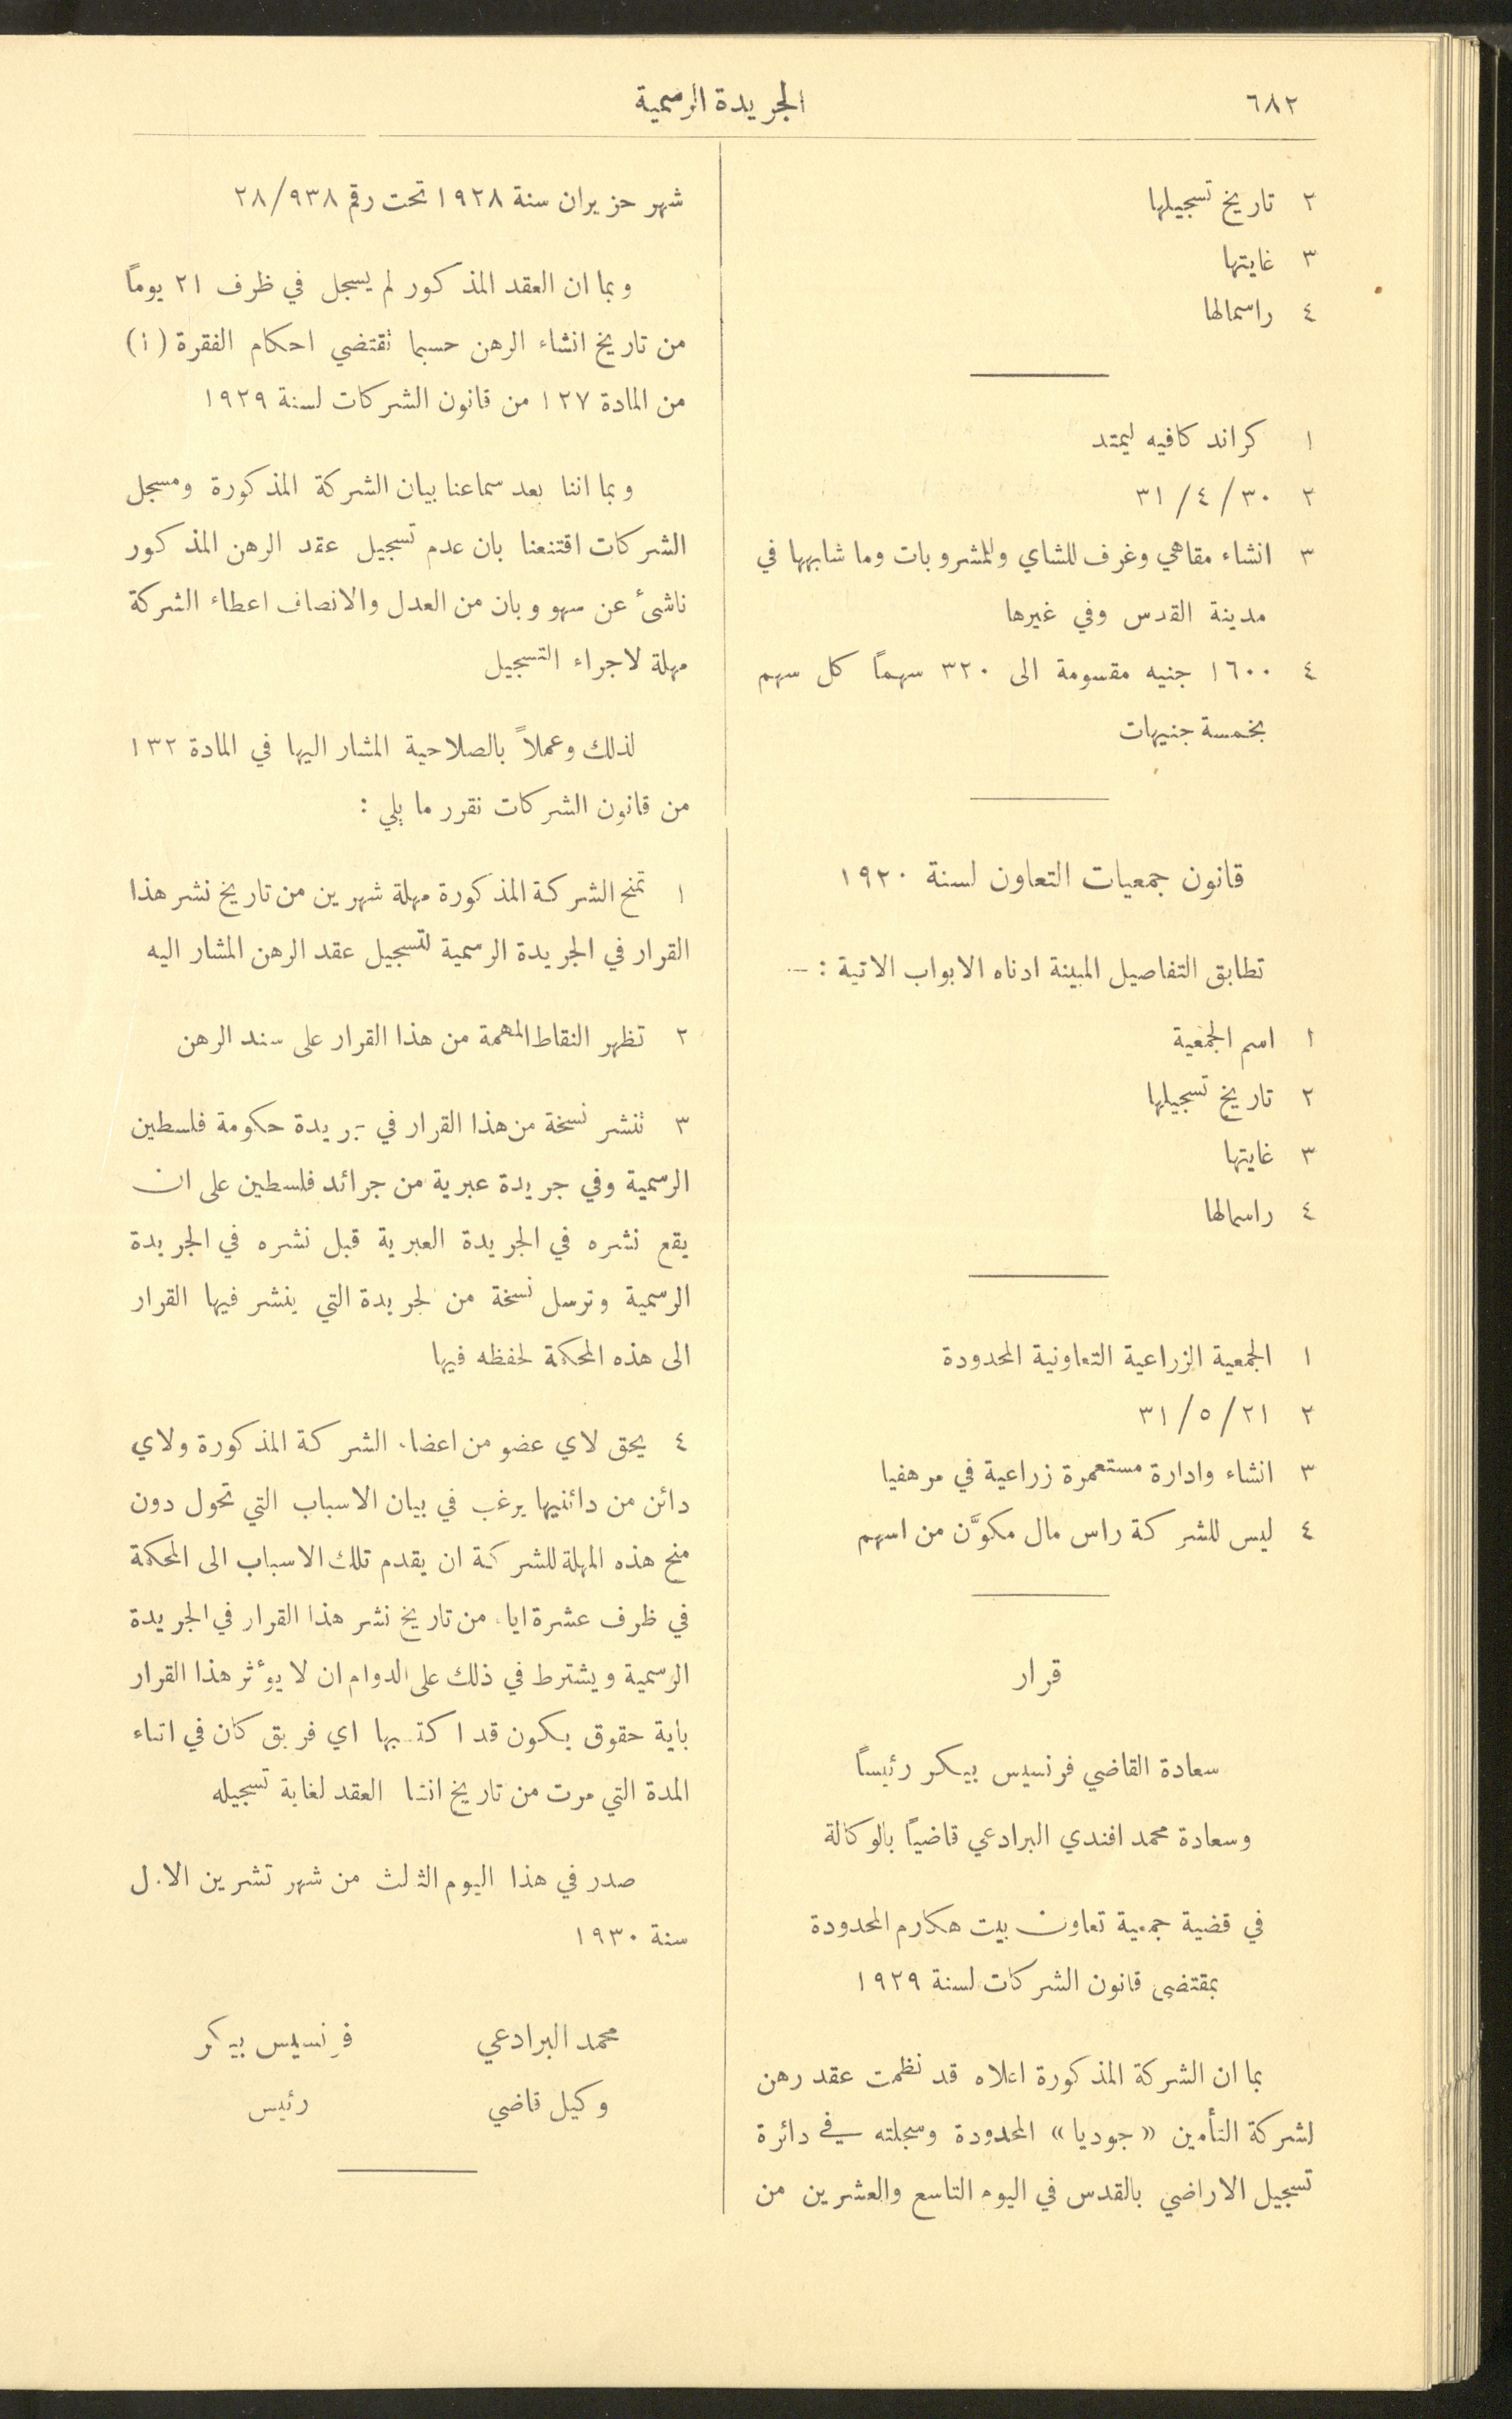 ٦٨٢
الجريدة الرسمية
٢ تاريخ تسجيلها
٣ غايتها
٤ راسمالها
١ كراند كافيه ليمتد
٢ ٣٠/٤/٣١
٣ انشاء مقاهي وغرف للشاي والمشروبات وما شابهها في
مدينة القدس وفي غيرها
٤ ١٦٠٠ جنيه مقسومة الى ٣٢٠ سهماً كل سهم
بخمسة جنيهات
قانون جمعيات التعاون لسنة ١٩٢٠
تطابق التفاصيل المبينة ادناه الابواب الاتية : —
١ اسم الجمعية
٢ تاريخ تسجيلها
٣ غايتها
٤ راسمالها
١ الجمعية الزراعية التعاونية المحدودة
٢ ٢١/٥/٣١
٣ انشاء وادارة مستعمرة زراعية في مرهفيا
٤ ليس للشركة راس مال مكوَّن من اسهم
قرار
سعادة القاضي فرنسيس بيكر رئيساً
وسعادة محمد افندي البرادعي قاضياً بالوكالة
في قضية جمعية تعاون بيت هكارم المحدودة
بمقتضى قانون الشركات لسنة ١٩٢٩
بما ان الشركة المذكورة اعلاه قد نظمت عقد رهن
لشركة التأمين «جوديا» المحدودة وسجلته في دائرة
تسجيل الاراضي بالقدس في اليوم التاسع والعشرين من
شهر حزيران سنة ١٩٢٨ تحت رقم ٢٨/٩٣٨
وبما ان العقد المذكور لم يسجل في ظرف ٢١ يوماً
من تاريخ انشاء الرهن حسبما تقتضي احكام الفقرة (أ)
من المادة ١٢٧ من قانون الشركات لسنة ١٩٢٩
وبما اننا بعد سماعنا بيان الشركة المذكورة ومسجل
الشركات اقتنعنا بان عدم تسجيل عقد الرهن المذكور
ناشئ عن سهو وبان من العدل والانصاف اعطاء الشركة
مهلة لاجراء التسجيل
لذلك وعملاً بالصلاحية المشار اليها في المادة ١٣٢
من قانون الشركات نقرر ما يلي :
١ تمنح الشركة المذكورة مهلة شهرين من تاريخ نشر هذا
القرار في الجريدة الرسمية لتسجيل عقد الرهن المشار اليه
٢ تظهر النقاط المهمة من هذا القرار على سند الرهن
٣ تنشر نسخة من هذا القرار في جريدة حكومة فلسطين
الرسمية وفي جريدة عبرية من جرائد فلسطين على ان
يقع نشره في الجريدة العبرية قبل نشره في الجريدة
الرسمية وترسل نسخة من الجريدة التي ينشر فيها القرار
الى هذه المحكمة لحفظه فيها
٤ يحق لاي عضو من اعضاء الشركة المذكورة ولاي
دائن من دائنيها يرغب في بيان الاسباب التي تحول دون
منح هذه المهلة للشركة ان يقدم تلك الاسباب الى المحكمة
في ظرف عشرة ايام من تاريخ نشر هذا القرار في الجريدة
الرسمية ويشترط في ذلك على الدوام ان لا يؤثر هذا القرار
باية حقوق يكون قد اكتسبها اي فريق كان في اثناء
المدة التي مرت من تاريخ انشاء العقد لغاية تسجيله
صدر في هذا اليوم الثالث من شهر تشرين الاول
سنة ١٩٣٠
محمد البرادعي فرنسيس بيكر
وكيل قاضي رئيس